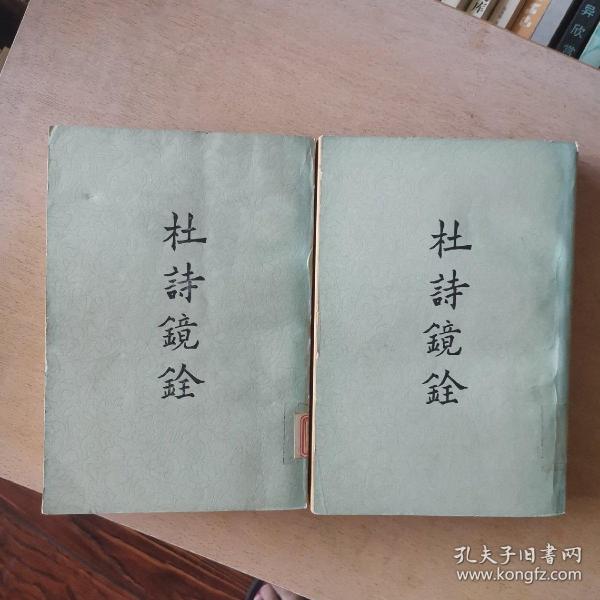 杜詩鏡銓
杜詩鏡銓
异欣赏
孔夫子旧書网
www.kongfz.com